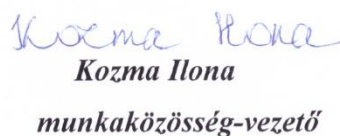 Kozma Ilona
Kozma Ilona
munkaközösség-vezető